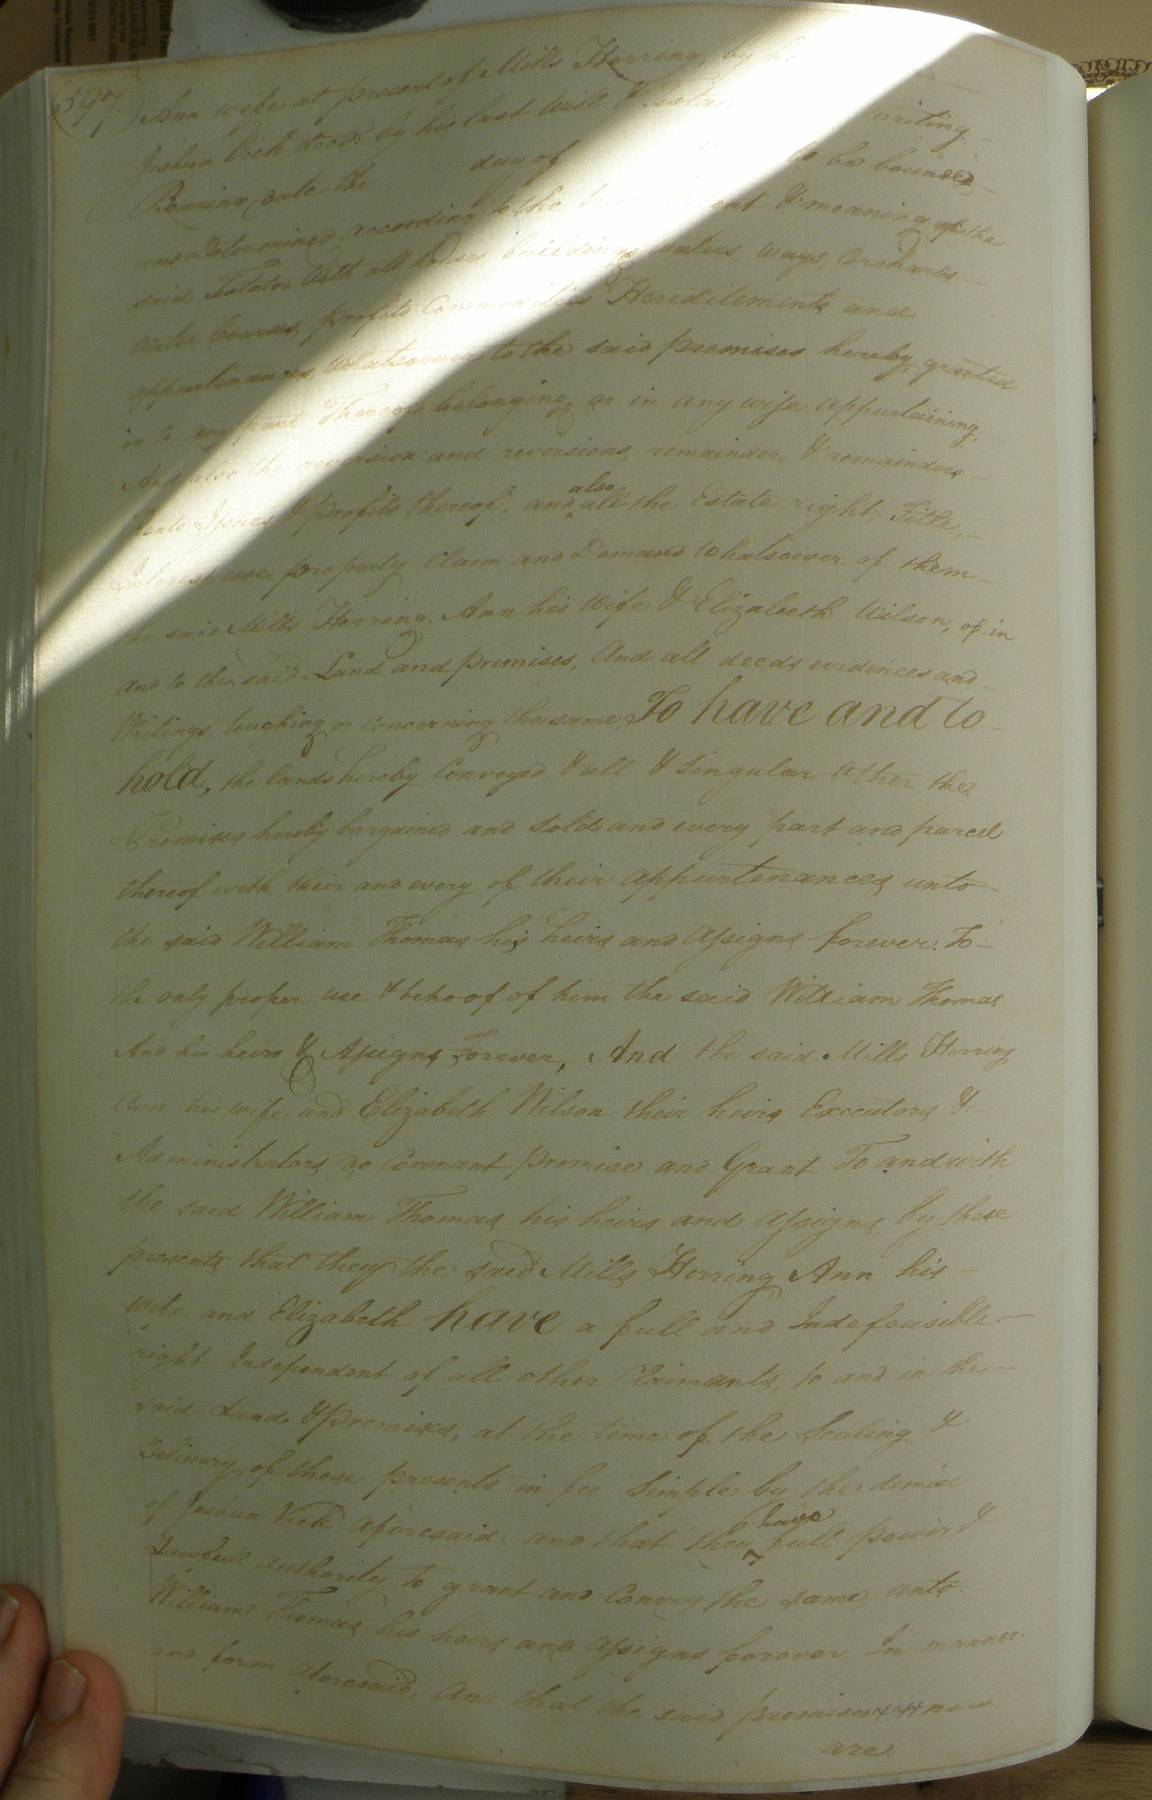 597
Ann wife at present of Mills Herring, by
Joshua Vick decd. by his last Will & writing
Bearing date the day of to be bounded
and Determined according to the & meaning of the
said Testator With all houses buildings, waters, ways, Orchards
water Courses, profits Commodities Hereditements and
appurtenances, Whatsoever to the said premises hereby granted
or to any part Thereof belonging, or in any wise appurtaining,
And also the reversion and reversions, remainder, & remainders
rents Issues & profits thereof, and also all the Estate right, Title,
Interest use, property Claim and Demand Whatsoever of them
the said Mills Herring, Ann his Wife & Elizabeth Wilson, of in
and to the said Land and premises, And all deeds evidences and
Writings, touching or concerning the same, To have and to
hold, the lands hereby Conveyed & all & singular other the
Premises hereby bargained and sold and every part and parcel
thereof with their and every of their appurtenances unto
the said William Thomas his heirs and assigns forever. To
the only proper use & behoof of him the said William Thomas
And his heirs & Assigns Forever, And the said Mills Herring
Ann his wife and Elizabeth Wilson their heirs Executors &
Administrators do Covenant Promise and Grant To and with
the said William Thomas his heirs and assigns, by these
presents that they the said Mills Herring Ann his
wife and Elizabeth have a full and Indefeasible
right Independent of all other Claimants, to and in the
said Land & premises, at the time of the Sealing &
Delivery of these presents in fee Simple by the demise
of Joshua Vick aforesaid and that they have full power &
Lawfull Authority to grant and Convey the same unto
William Thomas his heirs and assigns forever In manner
and form aforesaid, And that the said premises now
are